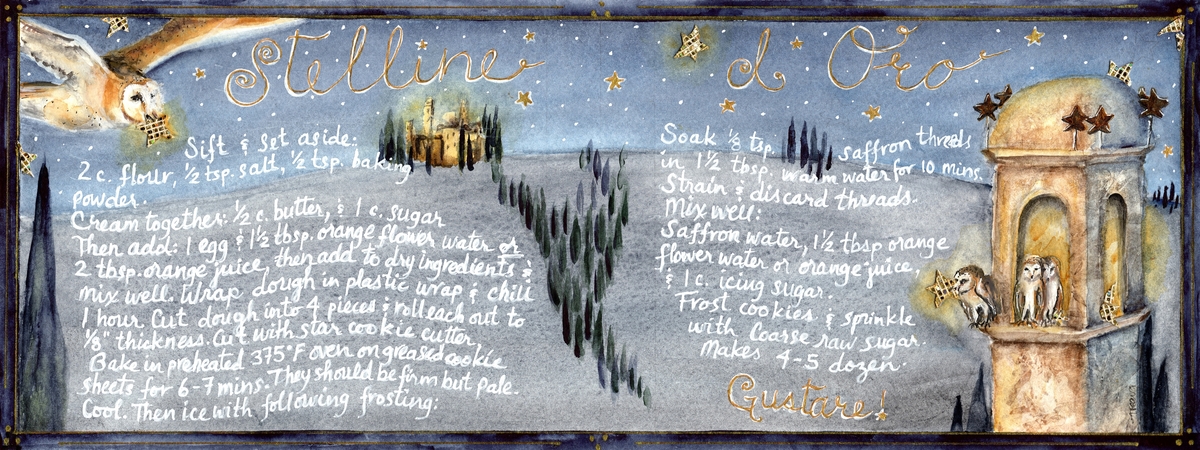 Stelline d Oro
Sift & set aside:
2 c. flour, ½ tsp. salt, ½ tsp. baking
powder.
Cream together: ½ c. butter, & 1 c. sugar
Then add: 1 egg & 1½ tbsp. orange flower water or
2 tbsp. orange juice, then add to dry ingredients &
mix well. Wrap dough in plastic wrap & chill
1 hour. Cut dough into 4 pieces & roll each out to
⅛" thickness. Cut with star cookie cutter.
Bake in preheated 375°F oven on greased cookie
sheets for 6-7 mins. They should be firm but pale.
Cool. Then ice with following frosting:
Soak ⅛ tsp. saffron threads
in 1½ tbsp. warm water for 10 mins.
Strain & discard threads.
Mix well:
Saffron water, 1½ tbsp orange
flower water or orange juice,
& 1 c. icing sugar.
Frost cookies & sprinkle
with Coarse raw sugar.
Makes 4-5 dozen.
Gustare!